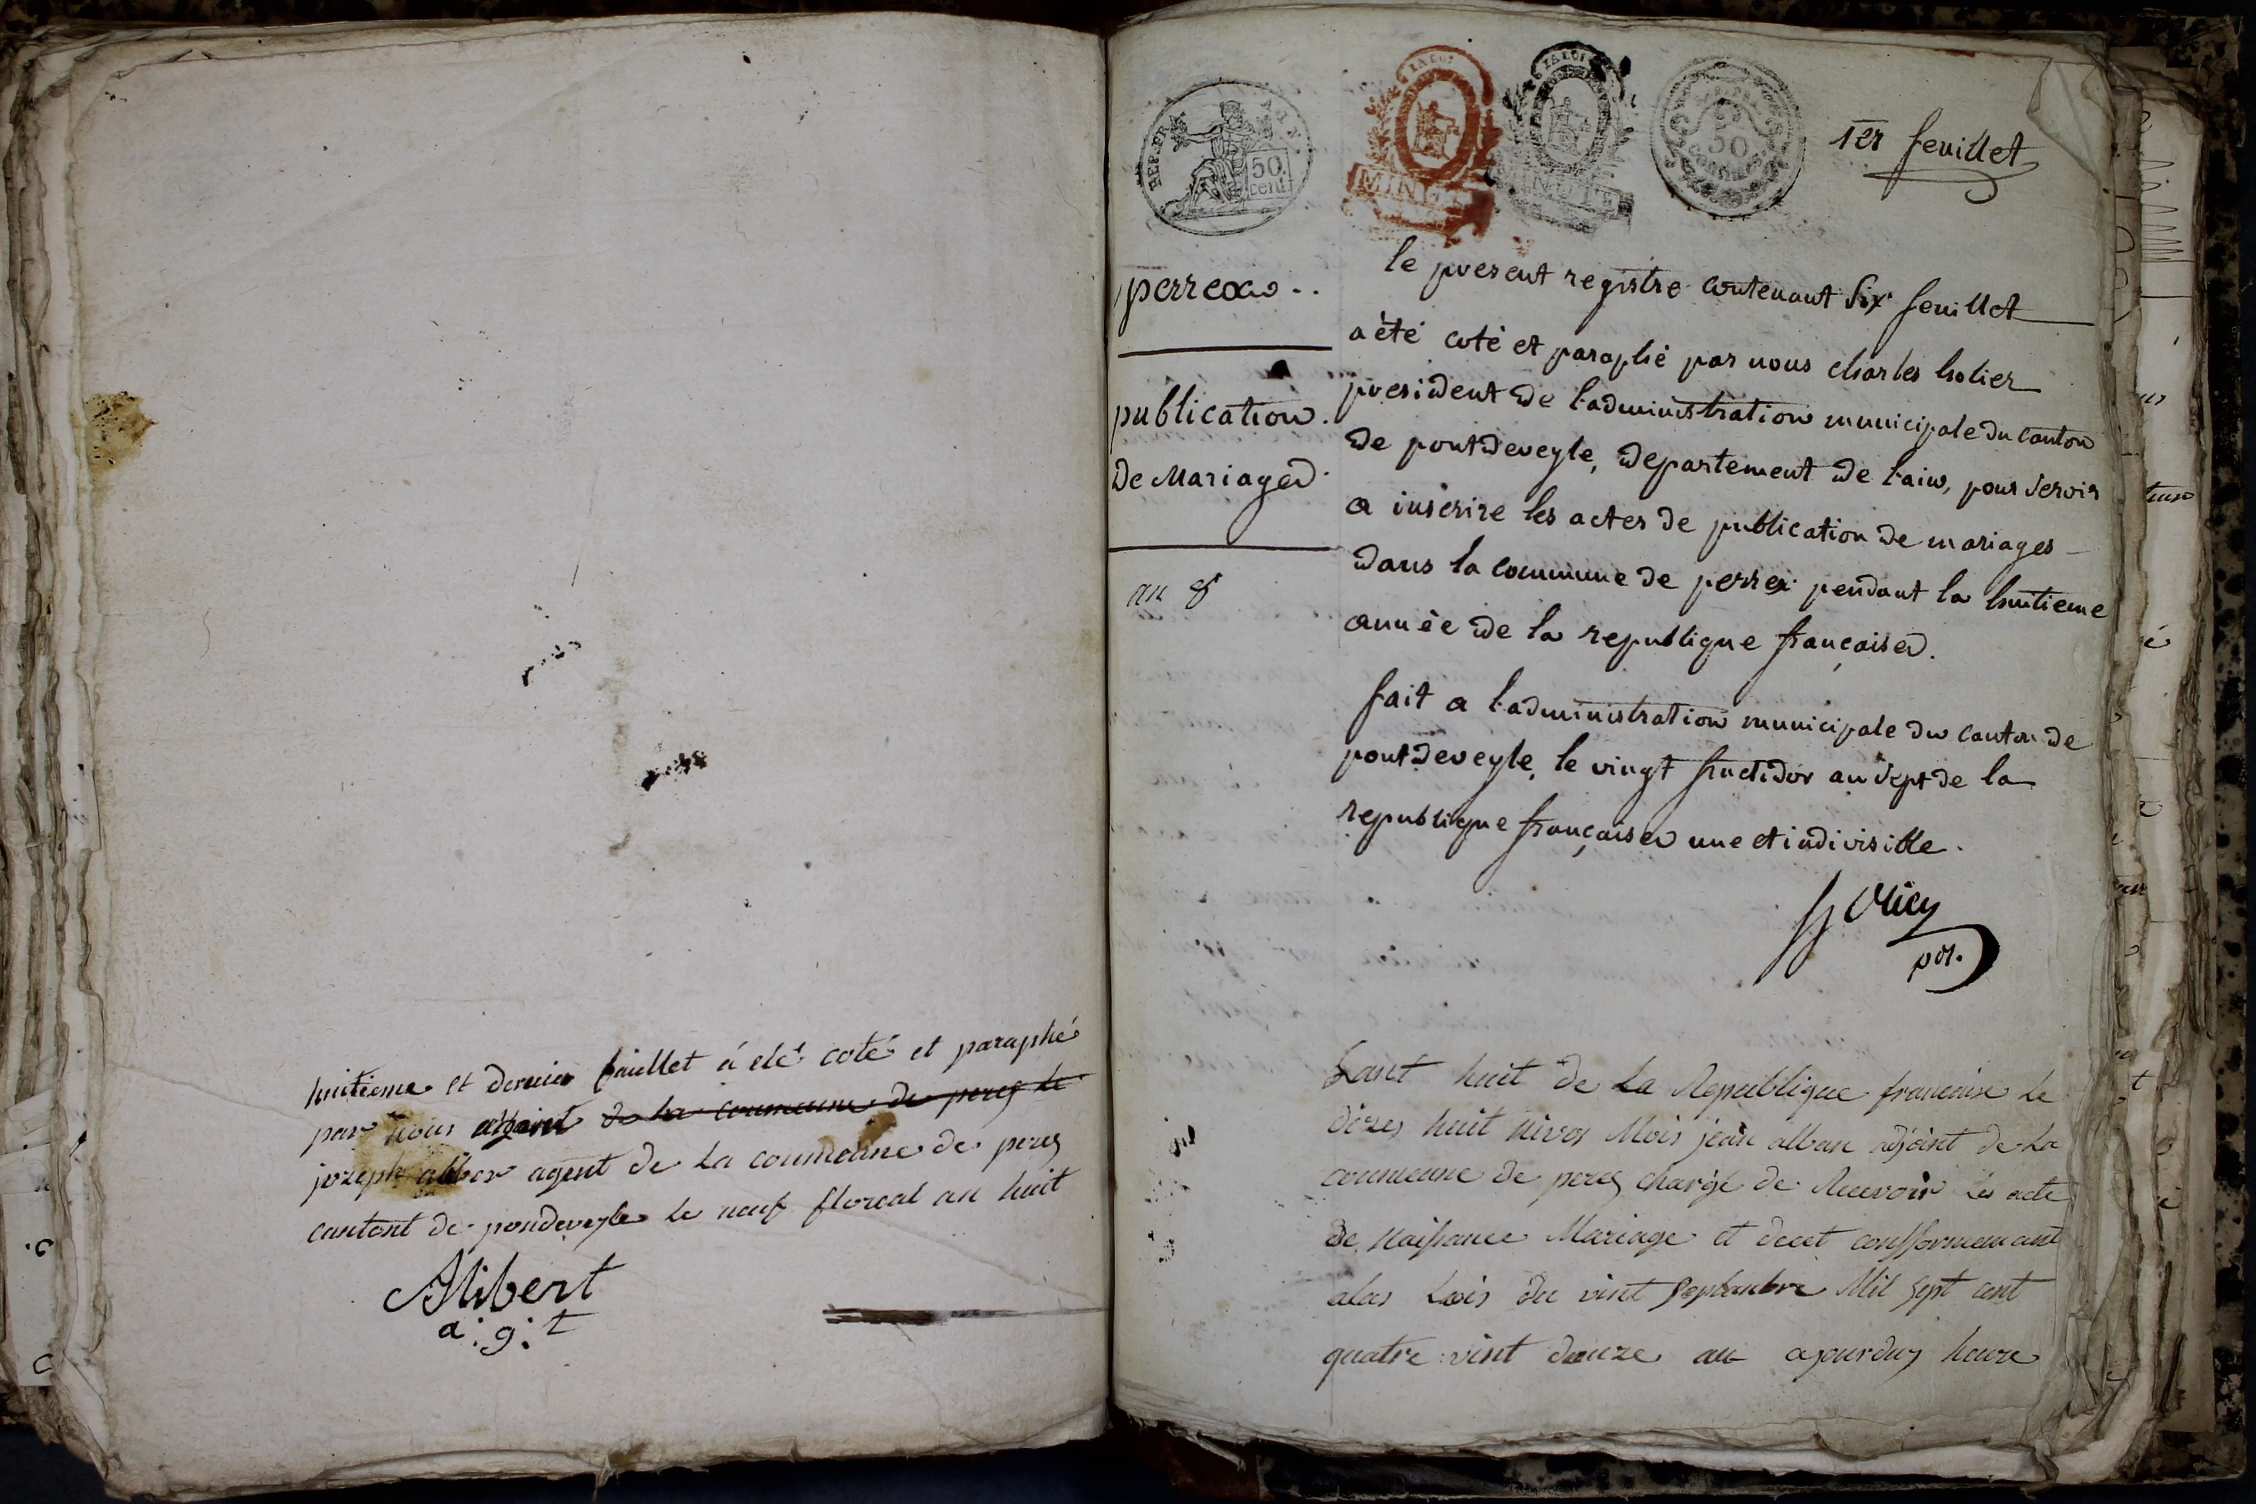 huitieme et dernier feuillet á eté coté et paraphé
par nous adjoint de la coumeune de perez le
jozeph aliber agent de la coumeune de perez
cantont de pondeveyle le neuf floreal an huit
Alibert
a: g: t
REP. FR.
50
cent.
LA LOI
MINUTE
LA LOI
MINUTE
50
1er feuillet
perrex
publication
De Mariages
an 8
le present registre contenant Six feuillet
a èté coté et paraphé par nous charles holier
president de l'administration municipale du canton
de pontdeveyle, departement de l'ain, pour servir
a inscrire les actes de publication de mariages
dans la commune de perrex pendant la huitieme
année de la republique française.
fait a l'administration municipale du canton de
pontdeveyle, le vingt fructidor an sept de la
republique française une et indivisible.
pdt.
Lant huit de La Republique francaise le
dizes huit nivos Mois jean alban adjoint de La
coumeune de perez chargé de Recevoir Les acte
De Naissance Mariage et decet conformemant
alas Lois du vint Septambre Mil sept cent
quatre vint douze au ajourduy heure